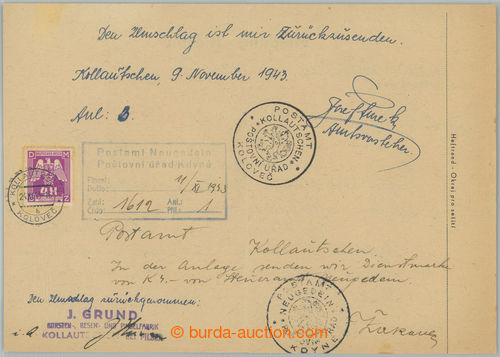 Den Umschlag ist mir Zurückzusenden.
Kollautschen, 9 November 1943
Anl: 3
Amtsvorsteher
POSTAMT
KOLLAUTSCHEN
POŠTOVNÍ ÚŘAD
KOLOVEČ
Postamt Neugedein
Poštovní úřad Kdyně
Eingel.
Došlo: 11/XI 1943
Zahl: Anl.:
Číslo: 1612 Příl.: 1
KOLOVEČ
Postamt
Kollautschen.
In der Anlage senden wir Dienstmarke
von K 4.- von Steueramt Neugedein.
Den Umschlag zurückgenommen:
J. GRUND
BÜRSTEN-, BESEN- UND PINSELFABRIK
KOLLAUTSCHEN BEI PILSEN
POSTAMT
NEUGEDEIN
KDYNĚ
Heftrand - Okraj pro sešití
burda-auction.com